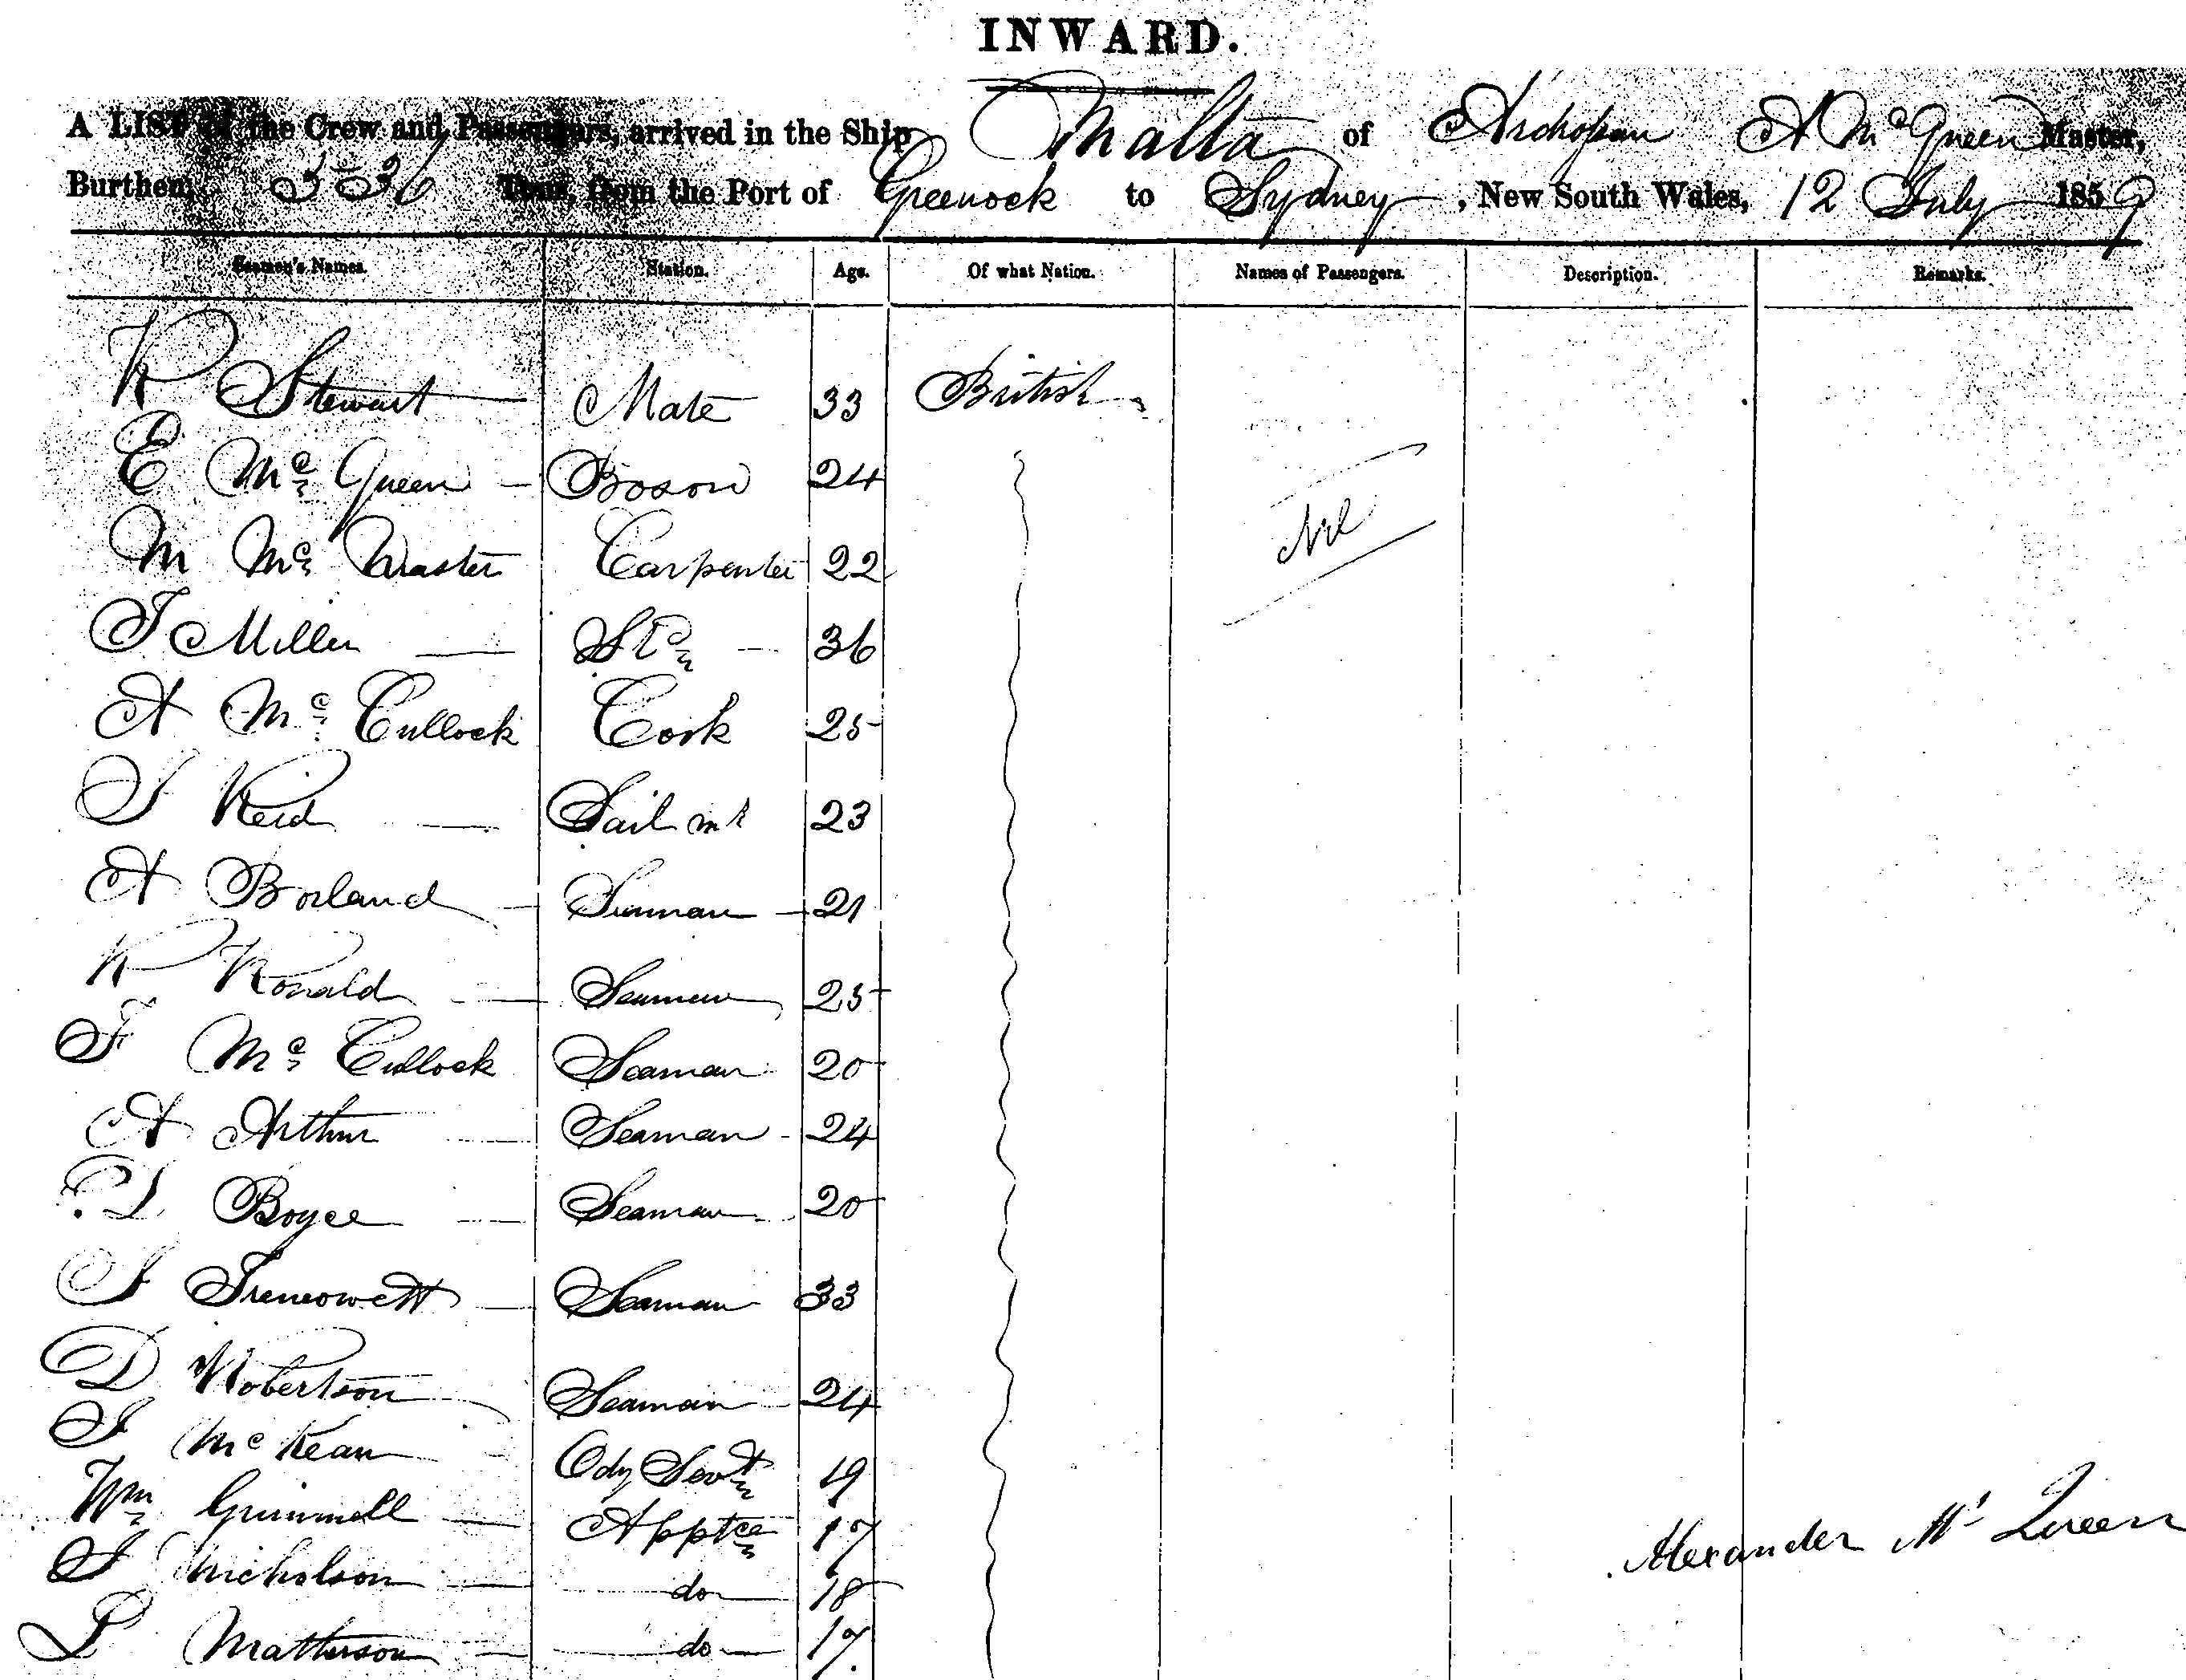 INWARD.
A LIST of the Crew and Passengers, arrived in the Ship Malta of A McQueen Master,
Burthen, 536 Tons, from the Port of Greenock to Sydney, New South Wales, 12 July 1859
Seamen's Names. Station. Age. Of what Nation. Names of Passengers. Description. Remarks.
R Stewart Mate 33 British
E Mc Queen Boson 24
Nil
M Mc Master Carpenter 22
J Miller 36
A Mc Cullock Cook 25
J Reid Sail mr 23
A Borland Seaman 21
R Ronald Seaman 25
F Mc Cullock Seaman 20
A Arthur Seaman 24
D Boyce Seaman 20
J Seaman 33
D Robertson Seaman 24
J McKean 19
Wm Grimmell Apptce 17
Alexander Mc Queen
J Nicholson do 18
P Matherson do 17